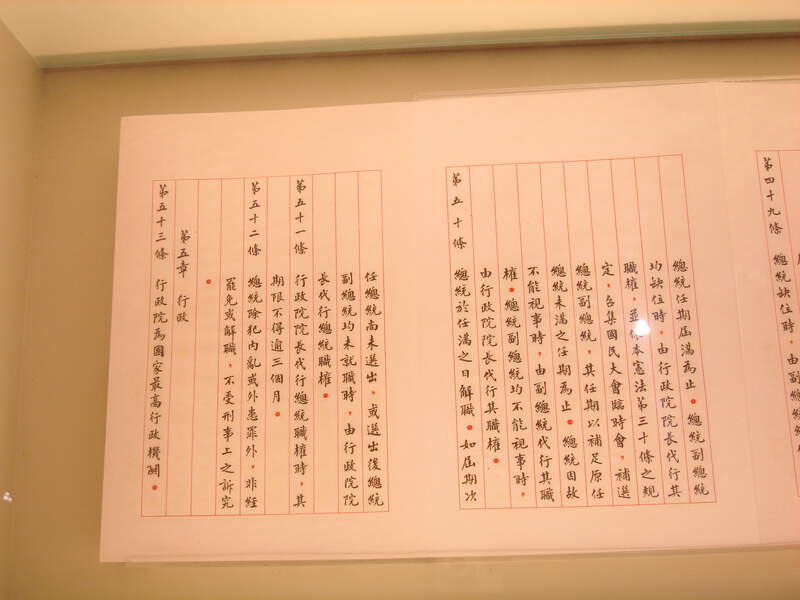 第四十九條 總統缺位時,由副總統
總統任期屆滿為止。總統副總統
均缺位時,由行政院院長代行其
職權,並依本憲法第三十條之規
定,召集國民大會臨時會,補選
總統副總統,其任期以補足原任
總統未滿之任期為止。總統因故
不能視事時,由副總統代行其職
權。總統副總統均不能視事時,
由行政院院長代行其職權。
第五十條 總統於任滿之日解職。如屆期次
任總統尚未選出,或選出後總統
副總統均未就職時,由行政院院
長代行總統職權。
第五十一條 行政院院長代行總統職權時,其
期限不得逾三個月。
第五十二條 總統除犯內亂或外患罪外,非經
罷免或解職,不受刑事上之訴究
。
第五章 行政
第五十三條 行政院為國家最高行政機關。